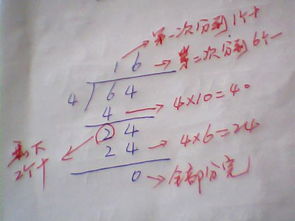 第一次分到1个十
1 6 第二次分到6个一
4 6 4
4 4×10=40
剩下2个十 2 4
2 4 4×6=24
0 全部分完